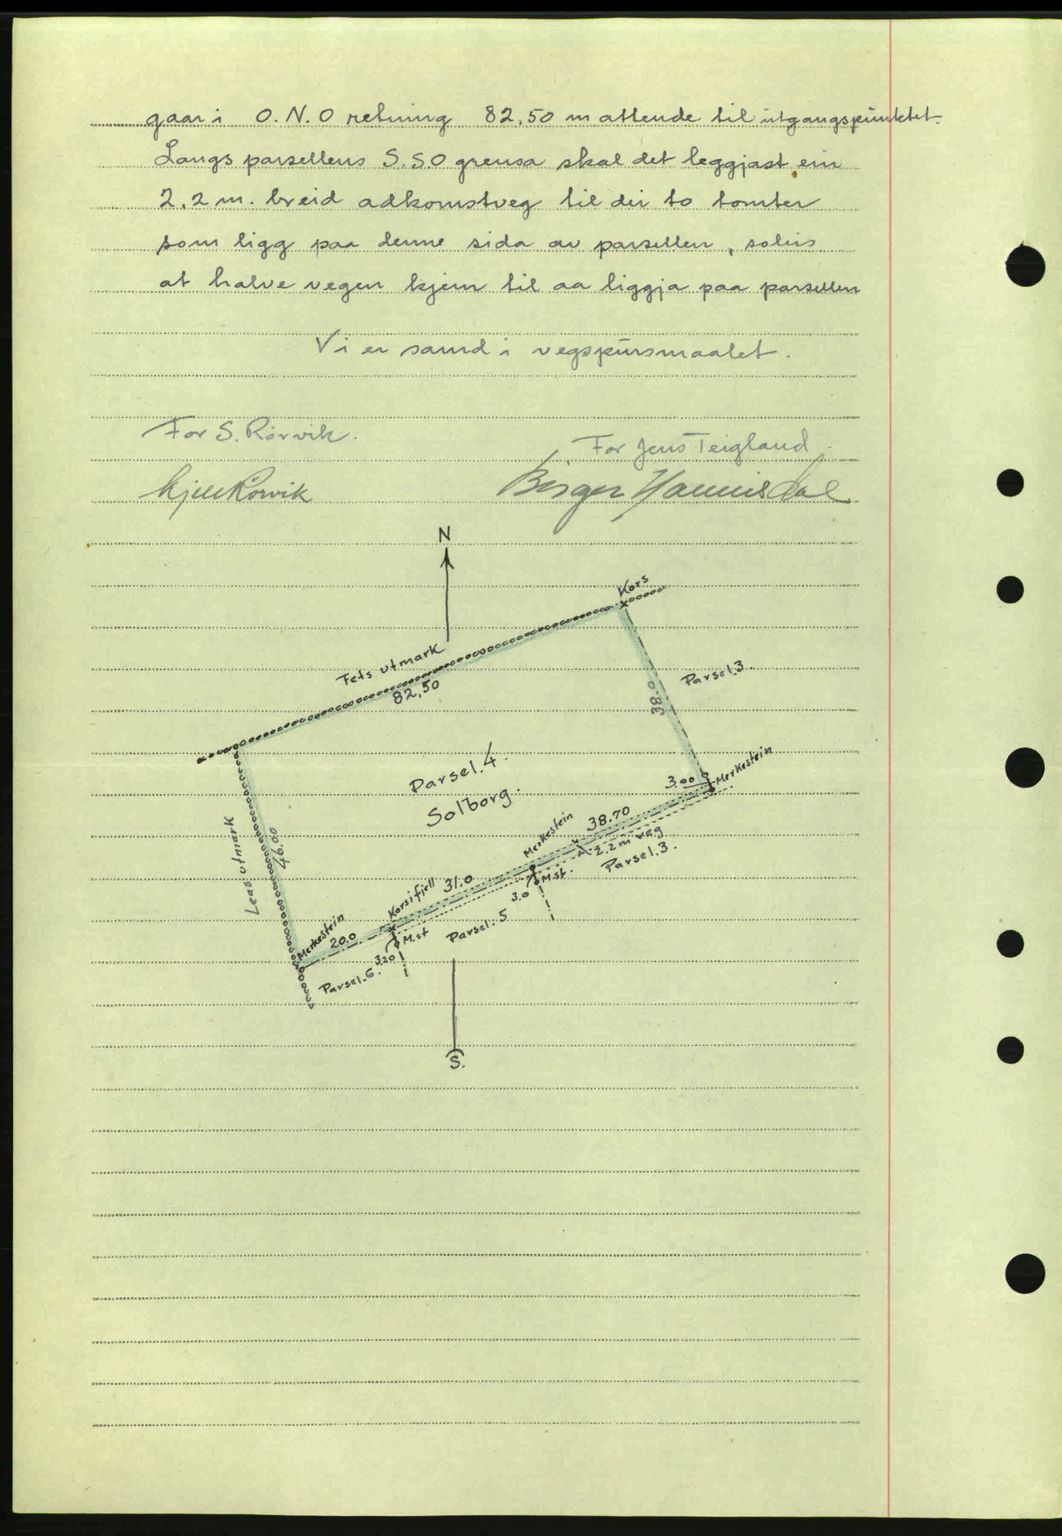 gaar i O.N.O retning 82,50 m attende til utgangspunktet.
Langs parsellens S.S.O grensa skal det leggjast ein
2,2 m. breid adkomstveg til dei to tomter
som ligg paa denne sida av parsellen, soleis
at halve vegen kjem til aa liggja paa parsellen
Vi er samd i vegspursmaalet.
For S. Rörvik.
For Jens Teigland.
Kjell Rörvik
Birger Hannisdal
N
Kors
Fets utmark
82,50
Parsel.3.
38.0
Parsel.4.
Solborg.
3,00
Merkestein
Leas utmark
46.00
Merkestein
38.70
2.2m veg
Parsel.3.
Korsifjell
31.0
M.st.
3.0
Merkestein
20.0
M.st
Parsel. 5
3.20
Parsel.6.
S.